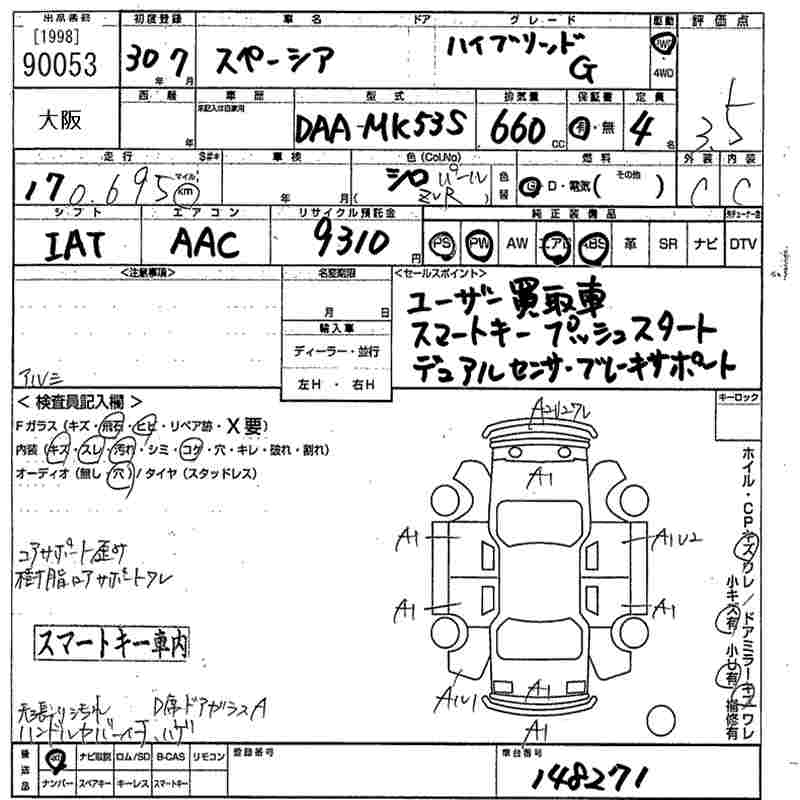 出品番号 初度登録 車名 ドア グレード 駆動 評価点
[1998]
90053 30 年 7 月 スペーシア ハイブリッド G 2WD 4WD 3.5
大阪 西暦 年 車歴 未記入は自家用 型式 DAA-MK53S 排気量 660 cc 保証書 有・無 定員 4 名
走行 S#* 車検 色(Col.No) 燃料 外装 内装
170.695 マイル km 年 月 シロ パール ( ZVR ) 色替 G D・電気 ( その他 ) C C
シフト エアコン リサイクル預託金 純正装備品
IAT AAC 9310 円 PS PW AW エアB ABS 革 SR ナビ DTV
<注意事項> 名変期限 <セールスポイント>
月 日 ユーザー買取車
輸入車 スマートキー プッシュスタート
ディーラー・並行 デュアルセンサーブレーキサポート
左H・右H
アルミ
キーロック
< 検査員記入欄 >
Fガラス (キズ・飛石・ヒビ・リペア跡・X要)
内装 (キズ・スレ・汚れ・シミ・コゲ・穴・キレ・破れ・割れ)
オーディオ (無し・穴) / タイヤ (スタッドレス)
A1
A1 A1U2
A1 A1
A1
A1
コアサポート歪み
樹脂コアサポートワレ
スマートキー車内
D席ドアガラスA
ホイル・CPキズワレ/ドアミラーキズワレ
小キズ有 小U有 補修有
後送品 ナビ取説 ロム/SD B-CAS リモコン 登録番号 車台番号
ナンバー スペアキー キーレス スマートキー 148271